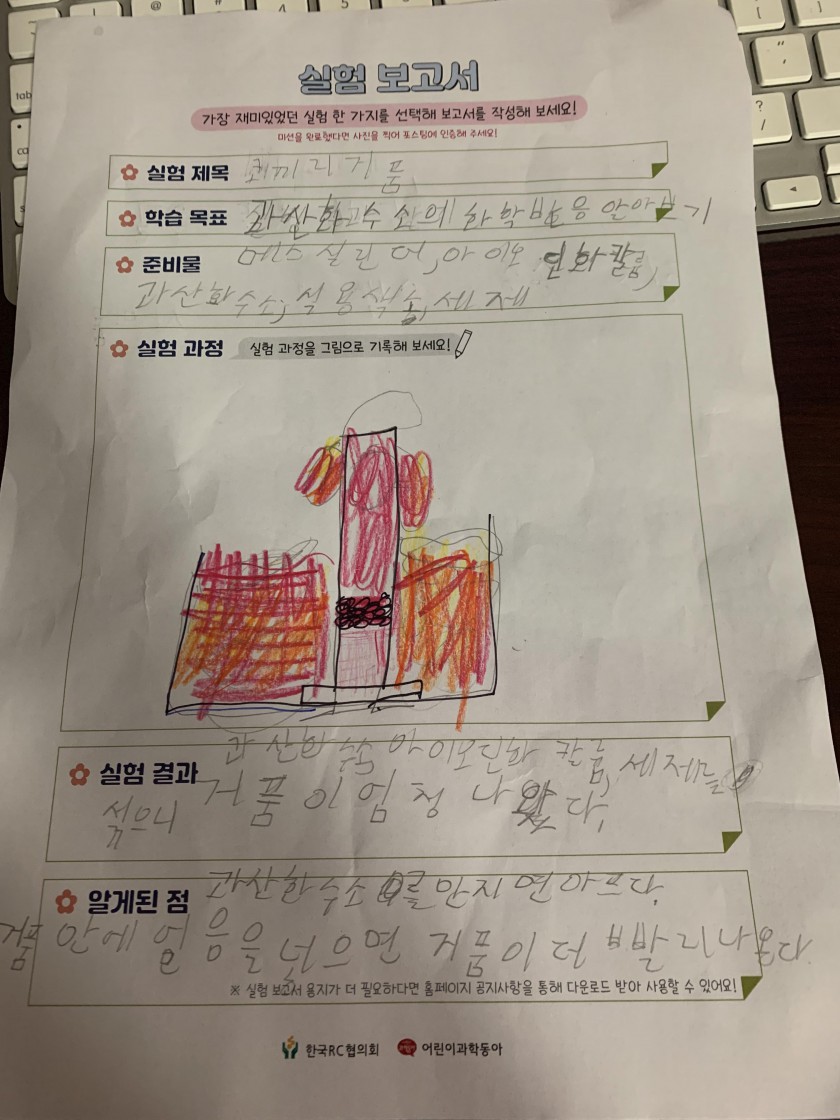 실험 보고서
가장 재미있었던 실험 한 가지를 선택해 보고서를 작성해 보세요!
미션을 완료했다면 사진을 찍어 포스팅에 인증해 주세요!
실험 제목 코끼리 거품
학습 목표 과산화수소의 화학반응 알아보기
준비물 메스실린더, 아이오딘화칼륨,
과산화수소, 식용색소, 세제
실험 과정 실험 과정을 그림으로 기록해 보세요!
과산화수소 아이오딘화 칼륨, 세제를
실험 결과
섞으니 거품이 엄청 나왔다.
알게된 점 과산화수소를 만지면 아프다.
거품 안에 얼음을 넣으면 거품이 더 빨리 나온다.
※ 실험 보고서 용지가 더 필요하다면 홈페이지 공지사항을 통해 다운로드 받아 사용할 수 있어요!
한국RC협의회 어린이과학동아